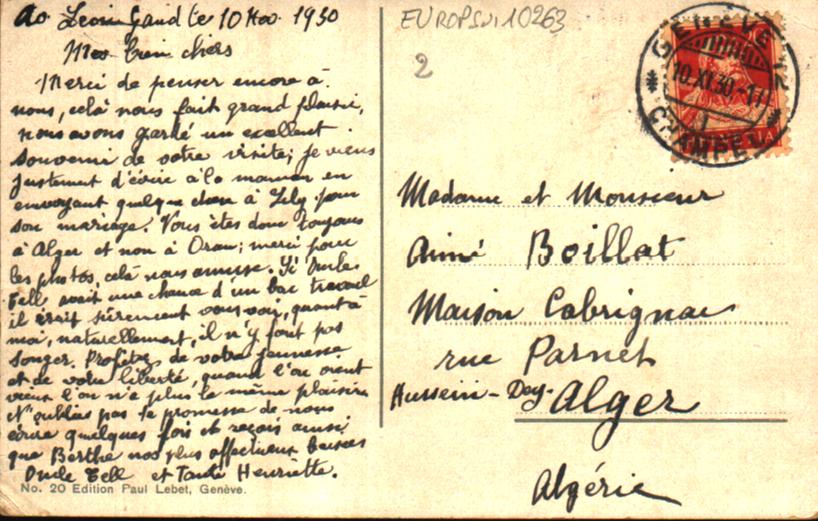 10 Nov. 1930
Mes bien chers
Merci de penser encore à
nous, celà nous fait grand plaisir,
nous avons gardé un excellent
souvenir de votre visite; je viens
justement d'écrire à la maman en
envoyant quelque chose à Lily pour
son mariage. Vous êtes donc toujours
à Alger et non à Oran; merci pour
les photos, celà nous amuse. Si Oncle
Tell avait une chance d'un bac travail
il irait sûrement vous voir, quant à
moi, naturellement, il n'y faut pas
songer. Profitez de votre jeunesse
et de votre liberté, quand l'on devient
vieux l'on n'a plus le même plaisir.
N'oubliez pas la promesse de nous
écrire quelques fois et reçois ainsi
que Berthe nos plus affectueux baisers
Oncle Tell et Tante Henriette.
No. 20 Edition Paul Lebet, Genève.
EUROPSUI10263
2
GENÈVE 12
10.XI.30.-17
CHAMPEL
Madame et Monsieur
Aimé Boillat
Maison Cabrignac
rue Parnet
Hussein-Dey- Alger
Algérie